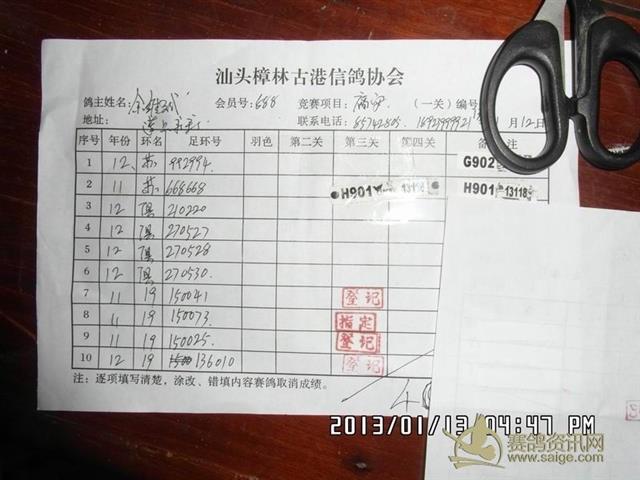 汕头樟林古港信鸽协会
鸽主姓名: 会员号: 688 竞赛项目: （一关）编号
地址: 联系电话: 1月12日
序号 年份 环名 足环号 羽色 第二关 第三关 第四关 备注
1 12 苏 992994 G902
2 11 苏 668668 H901 13118 H901 13118
3 12 210220
4 12 270527
5 12 270528
6 12 270530
7 11 19 150041 登记
8 11 19 150073 指定
9 11 19 150025 登记
10 12 19 136010 登记
注：逐项填写清楚，涂改、错填内容赛鸽取消成绩。
2013/01/13 04:47 PM
赛鸽资讯网
www.saige.com